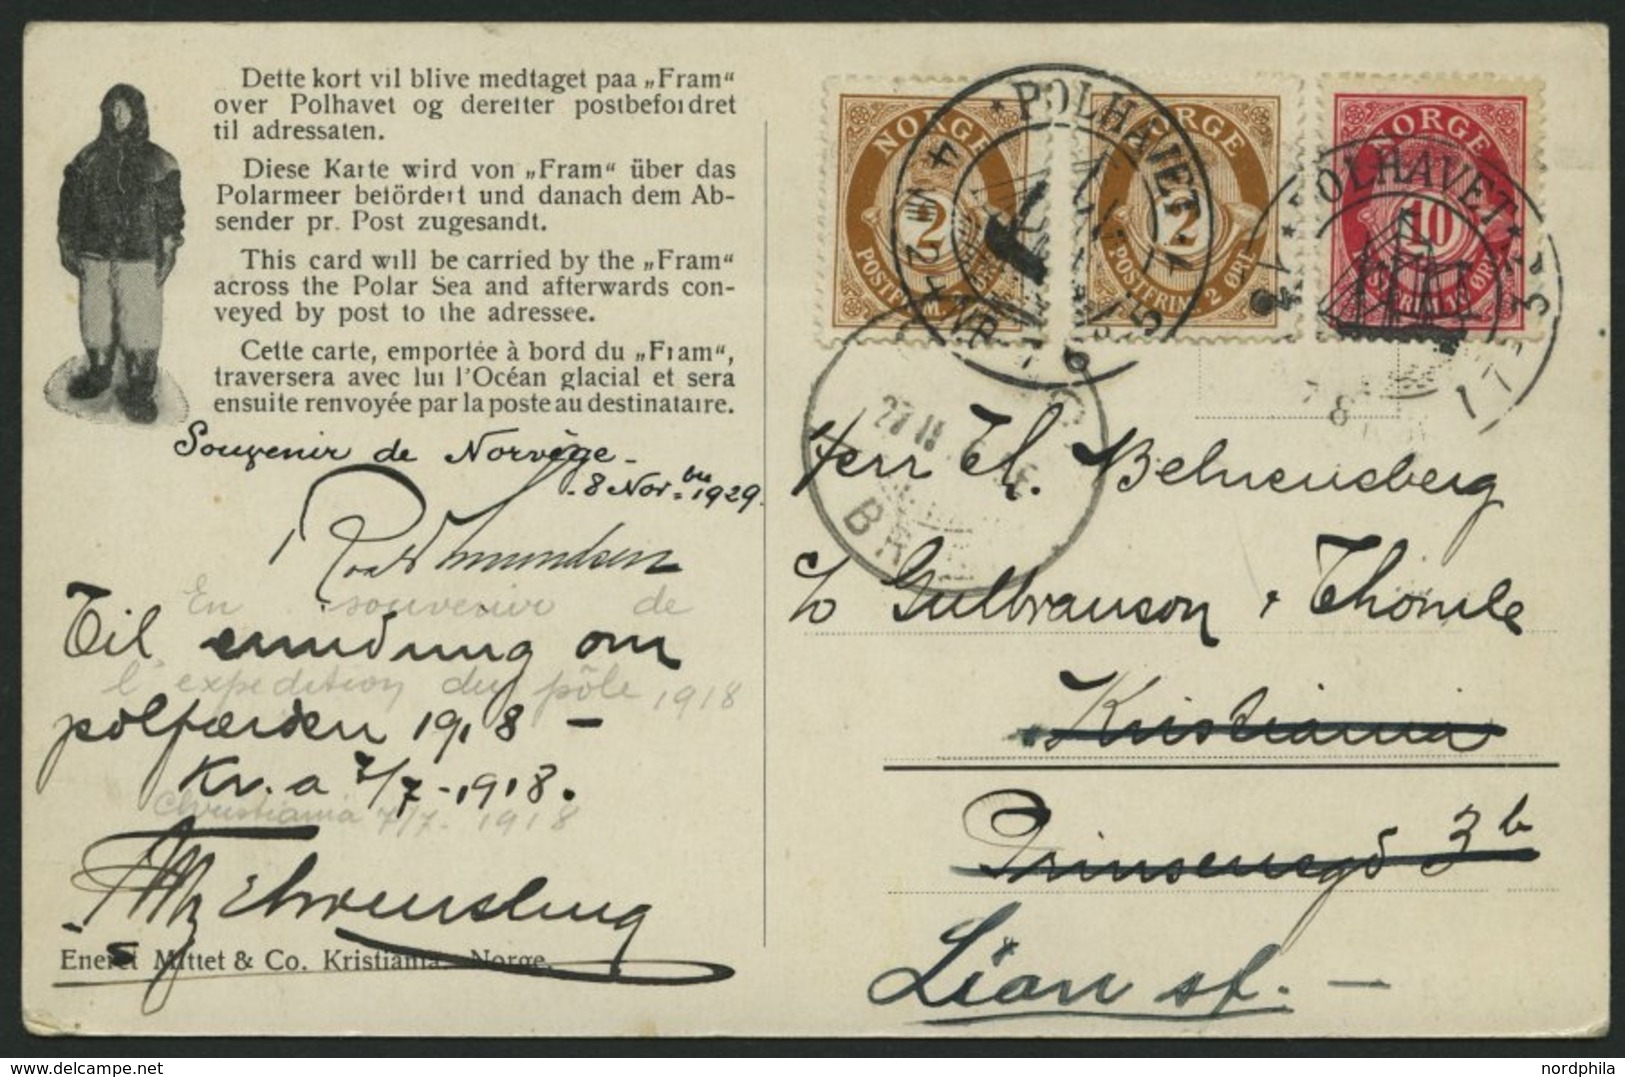 Dette kort vil blive medtaget paa „Fram“
over Polhavet og derefter postbefordret
til adressaten.
Diese Karte wird von „Fram“ über das
Polarmeer befördert und danach dem Ab-
sender pr. Post zugesandt.
This card will be carried by the „Fram“
across the Polar Sea and afterwards con-
veyed by post to the adressee.
Cette carte, emportée à bord du „Fram“,
traversera avec lui l'Océan glacial et sera
ensuite renvoyée par la poste au destinataire.
Souvenir de Norvège -
8 Novbre 1929.
Roald Amundsen
En souvenir de
Til erindring om
l'expedition du pôle 1918
polfærden 1918 –
Kr.a 7/7 - 1918.
Christiania 7/7 - 1918
Eneret Mittet & Co. Kristiania - Norge.
NORGE
2
POSTFRIM.
NORGE
2
POSTFRIM. 2 ØRE
NORGE
10
POSTFRIM. 10 ØRE
POLHAVET
POLHAVET
27 II
BR
Herr Th. Behrensberg
c/o Gulbranson & Thomle
Kristiania
Prinsensgd 3b
Lian st. –
nordphila